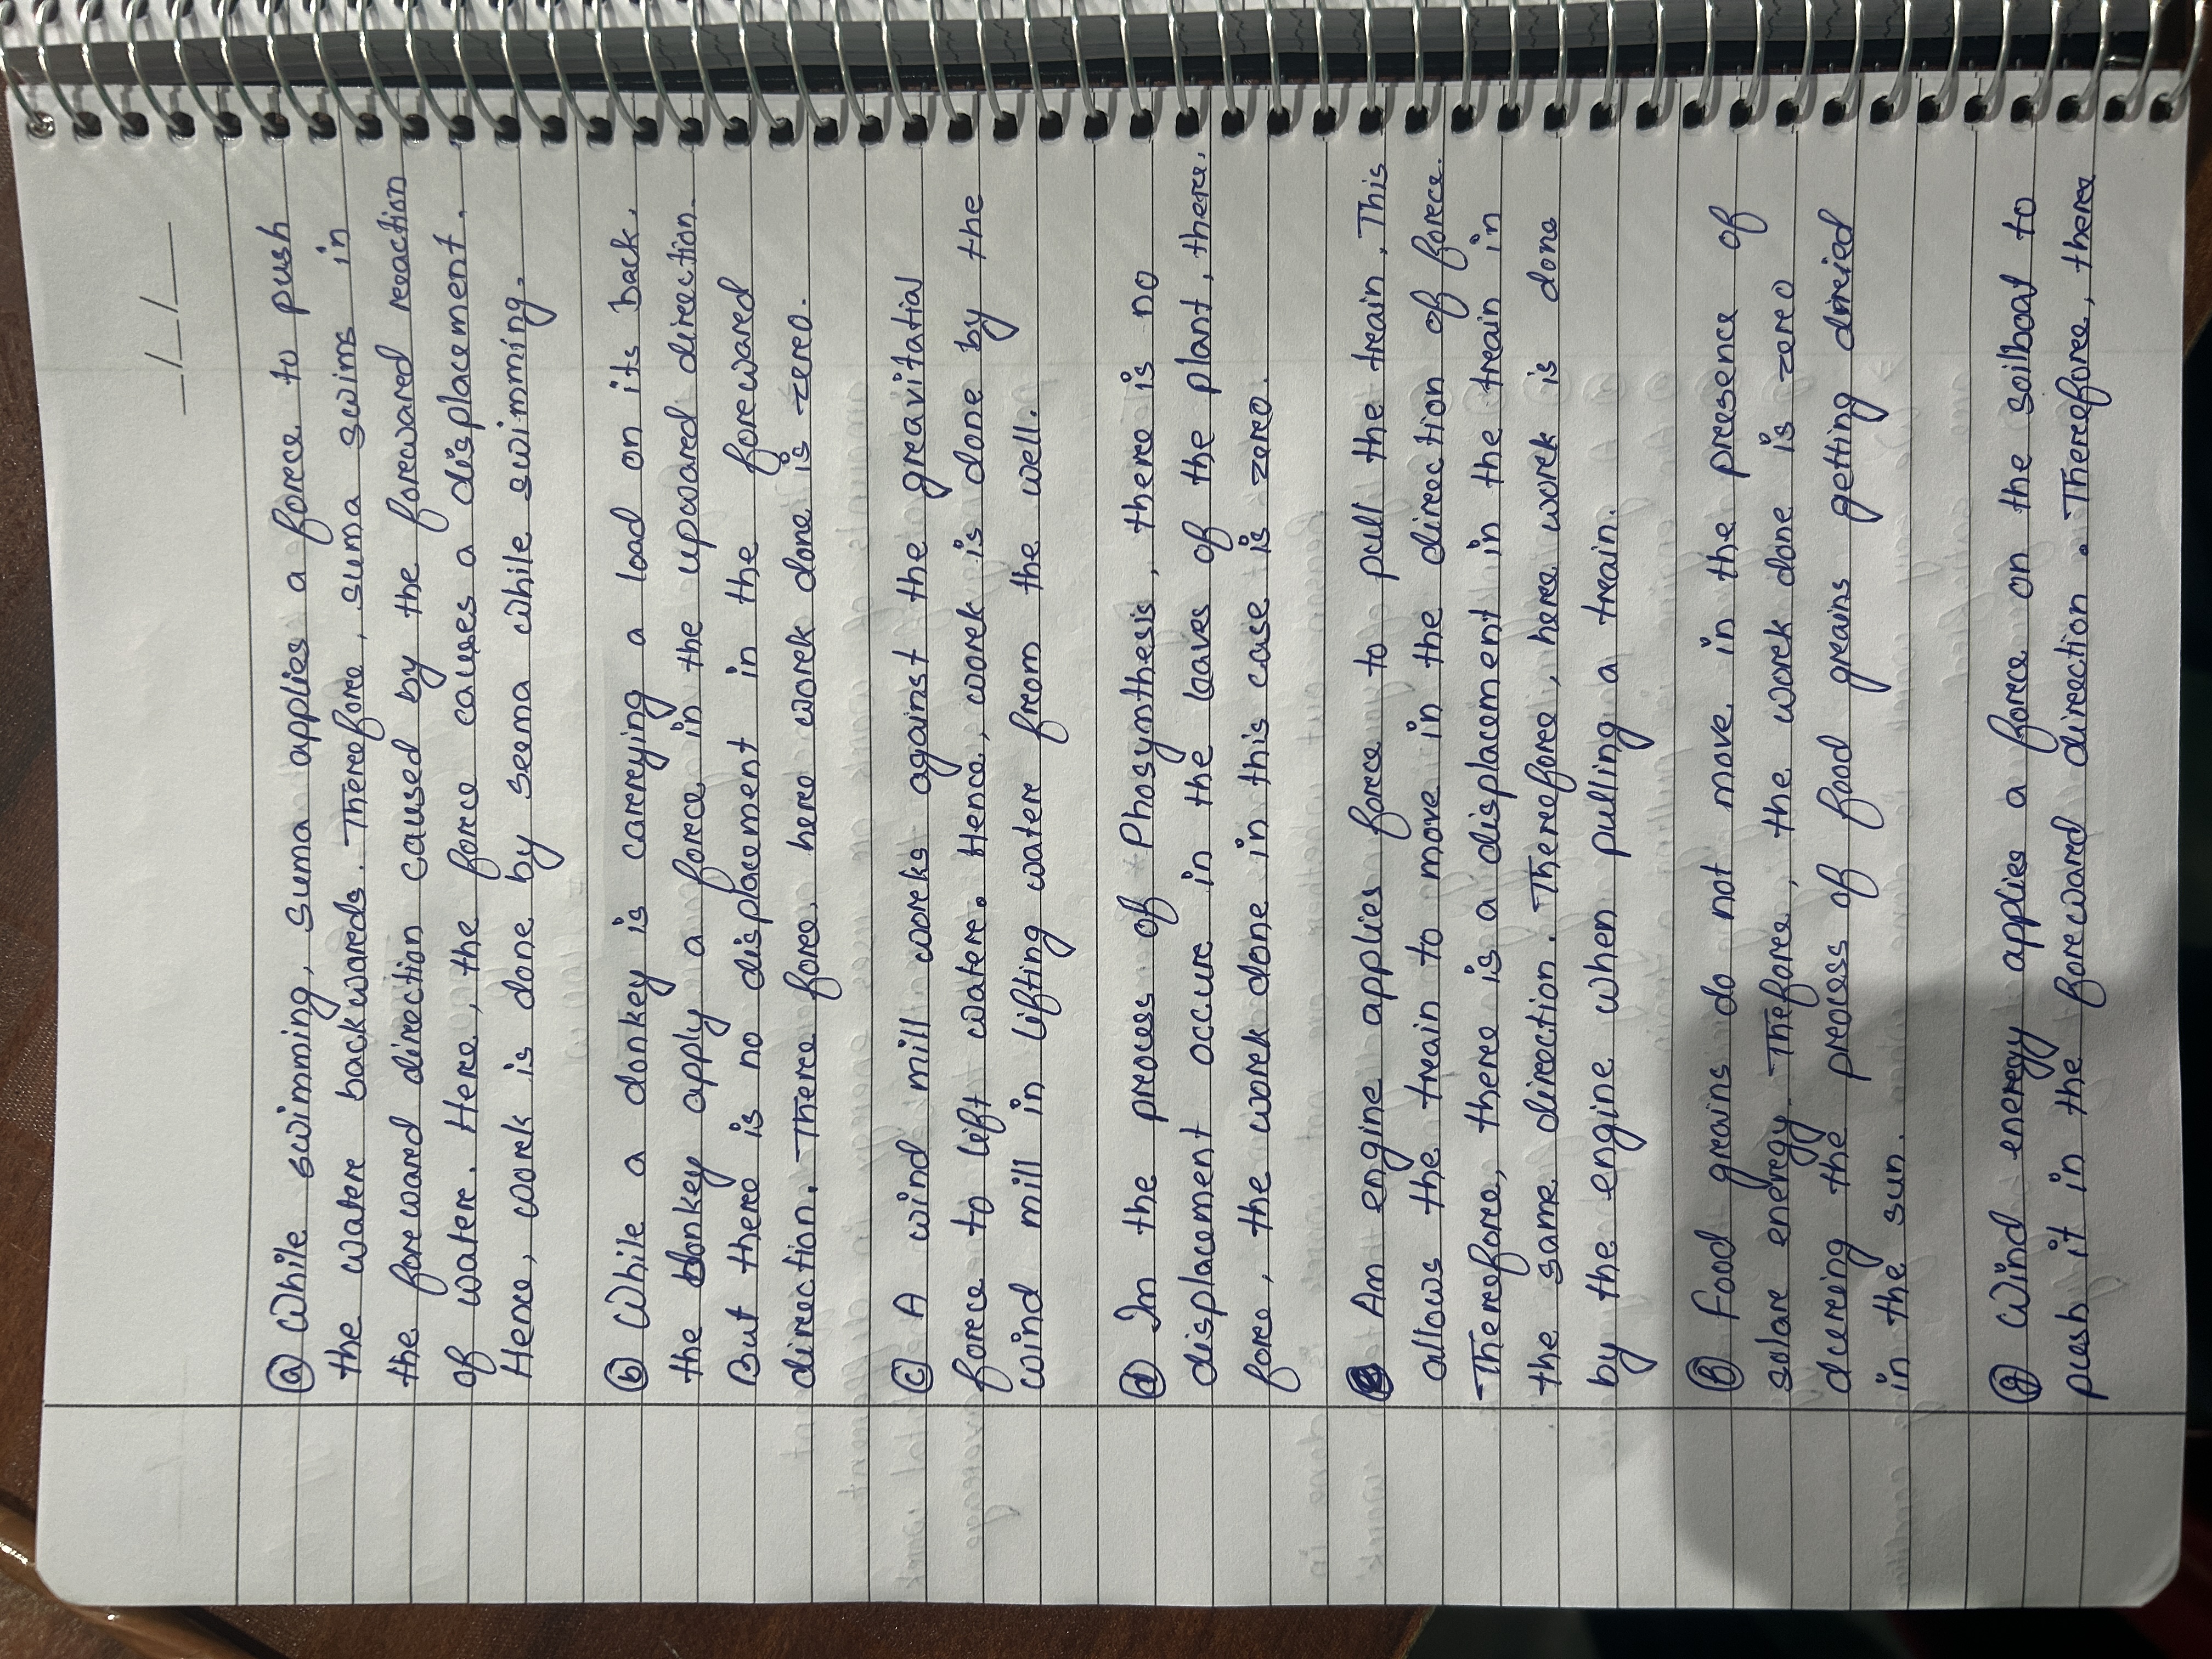 _/_/__
ⓐ While swimming, suma applies a force to push
the water backwards. Therefore, suma swims in
the forward direction caused by the forward reaction
of water. Here, the force causes a displacement.
Hence, work is done by Seema while swimming.
ⓑ While a donkey is carrying a load on its back,
the donkey apply a force in the upward direction.
But there is no displacement in the forward
direction. There fore, here work done is zero.
ⓒ A wind mill works against the gravitatial
force to lift water. Hence, work is done by the
wind mill in lifting water from the well.
ⓓ In the process of Phosynthesis, there is no
displacement occur in the leaves of the plant, there.
fore, the work done in this case is zero.
ⓔ An engine applies force to pull the train. This
allows the train to move in the direction of force.
Therefore, there is a displacement in the train in
the same direction. Therefore, here work is done
by the engine when pulling a train.
ⓕ Food grains do not move in the presence of
solar energy. Thefore, the work done is zero
during the process of food grains getting dried
in the sun.
ⓖ Wind energy applies a force on the soilboat to
push it in the forward direction. Therefore, there